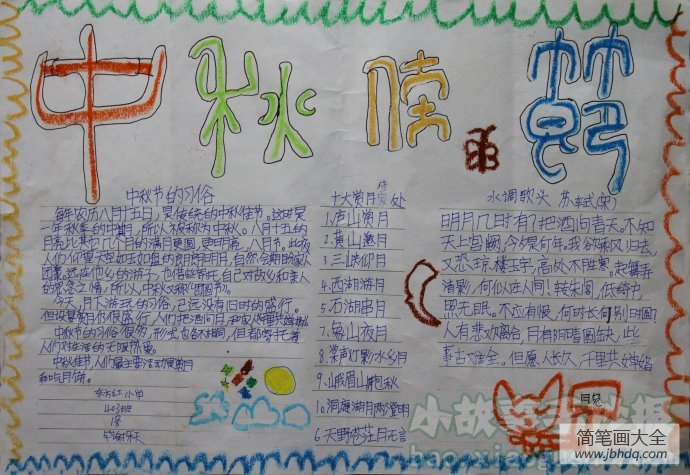 中秋佳节
中秋节的习俗
每年农历八月十五日，是传统的中秋佳节。这时是
一年秋季的中期，所以被称为中秋。八月十五的
月亮比其它几个月的满月更圆，更明亮，八月节。此夜
人们仰望天空如玉如盘的朗朗明月，自然会期盼家人
团聚。远在他乡的游子，也借此寄托自己对故乡和亲人
的思念之情，所以，中秋又称“团圆节”。
今天，月下游玩的习俗，已远没有旧时的盛行。
但设宴赏月仍很盛行，人们把酒问月
中秋节的习俗很多，形式也各不相同，但都寄托着
人们对生活的无限热爱
中秋佳节，人们最主要活动是赏月
和吃月饼。
东方红小学
403班
18
十大赏月佳处
1、庐山赏月
2、黄山邀月
3、三峡仰月
4、西湖游月
5、石湖串月
7、象山夜月
8、桨声灯影水乡月
9、峨眉山抱秋
10、洞庭湖月两澄明
6、天野苍茫月无言
水调歌头 苏轼(宋)
明月几时有？把酒问青天。不知
天上宫阙，今夕是何年。我欲乘风归去，
又恐琼楼玉宇，高处不胜寒。起舞弄
清影，何似在人间！转朱阁，低绮户，
照无眠。不应有恨，何时长向别时圆！
人有悲欢离合，月有阴晴圆缺，此
事古难全。但愿人长久，千里共婵娟
月兔
简笔画大全
www.jbhdq.com